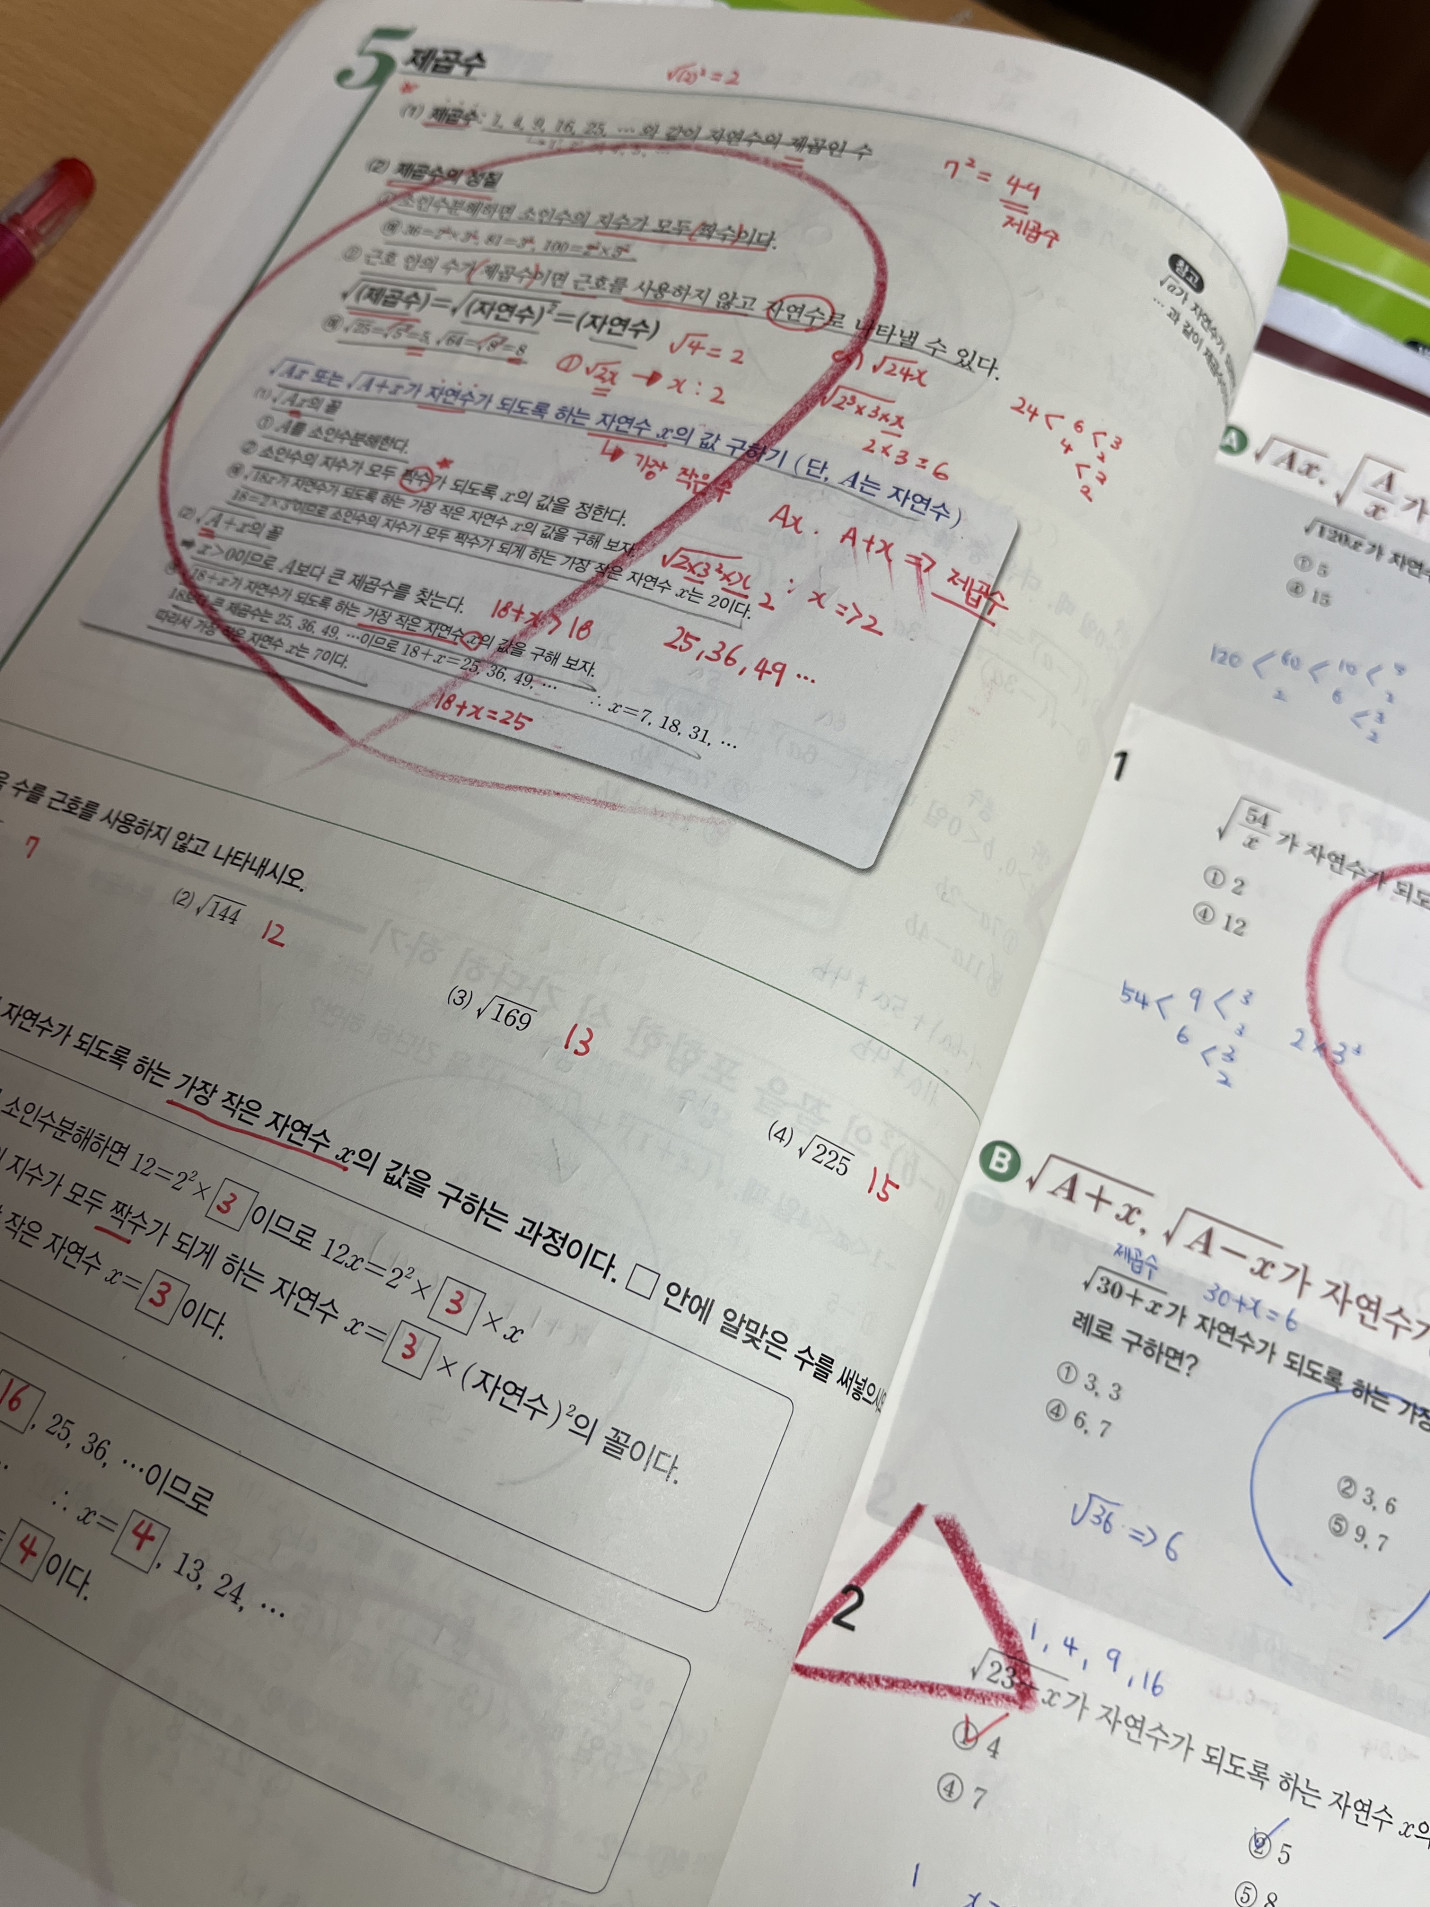 5 제곱수
√(2)² = 2
(1) 제곱수: 1, 4, 9, 16, 25, …와 같이 자연수의 제곱인 수
7² = 49
제곱수
(2) 제곱수의 성질
① 소인수분해하면 소인수의 지수가 모두 짝수이다.
예 36=2²×3², 81=3⁴, 100=2²×5²
② 근호 안의 수가 제곱수이면 근호를 사용하지 않고 자연수로 나타낼 수 있다.
√(제곱수)=√(자연수)²=(자연수)
√4 = 2
예 √25=√5²=5, √64=√8²=8
① √2x → x : 2
√24x
√2³×3×x
2×3=6
24 < 6 < 3
4 2
< 2
2
√Ax 또는 √A+x가 자연수가 되도록 하는 자연수 x의 값 구하기 (단, A는 자연수)
↳ 가장 작은 수
(1) √Ax의 꼴
① A를 소인수분해한다.
② 소인수의 지수가 모두 짝수가 되도록 x의 값을 정한다.
예 √18x가 자연수가 되도록 하는 가장 작은 자연수 x의 값을 구해 보자.
18=2×3²이므로 소인수의 지수가 모두 짝수가 되게 하는 가장 작은 자연수 x는 2이다.
Ax . A+x => 제곱수
√2×3²×x
2 : x => 2
(2) √A+x의 꼴
➡ x>0이므로 A보다 큰 제곱수를 찾는다.
18+x > 18
25, 36, 49 …
예 √18+x가 자연수가 되도록 하는 가장 작은 자연수 x의 값을 구해 보자.
18보다 큰 제곱수는 25, 36, 49, …이므로 18+x=25, 36, 49, … ∴ x=7, 18, 31, …
따라서 가장 작은 자연수 x는 7이다.
18+x=25
수를 근호를 사용하지 않고 나타내시오.
7
(2) √144 12
(3) √169 13
(4) √225 15
자연수가 되도록 하는 가장 작은 자연수 x의 값을 구하는 과정이다. □ 안에 알맞은 수를 써넣으시오
소인수분해하면 12=2²× 3 이므로 12x=2²× 3 ×x
지수가 모두 짝수가 되게 하는 자연수 x= 3 ×(자연수)²의 꼴이다.
작은 자연수 x= 3 이다.
16 , 25, 36, …이므로
∴ x= 4 , 13, 24, …
4 이다.
참고
√a가 자연수가
…과 같이 제곱수
A √Ax, √A/x 가
√120x가 자연수
① 5
④ 15
120 < 60 < 10 < 5
2 6 2
< 3
2
1
√54/x 가 자연수가 되도
① 2
④ 12
54 < 9 < 3
3
6 < 3
2
2×3³
B √A+x, √A−x가 자연수가
제곱수
30+x=6
√30+x가 자연수가 되도록 하는 가장
례로 구하면?
① 3, 3
② 3, 6
④ 6, 7
⑤ 9, 7
√36 => 6
2
1, 4, 9, 16
√23−x가 자연수가 되도록 하는 자연수 x의
① 4
② 5
④ 7
⑤ 8
1